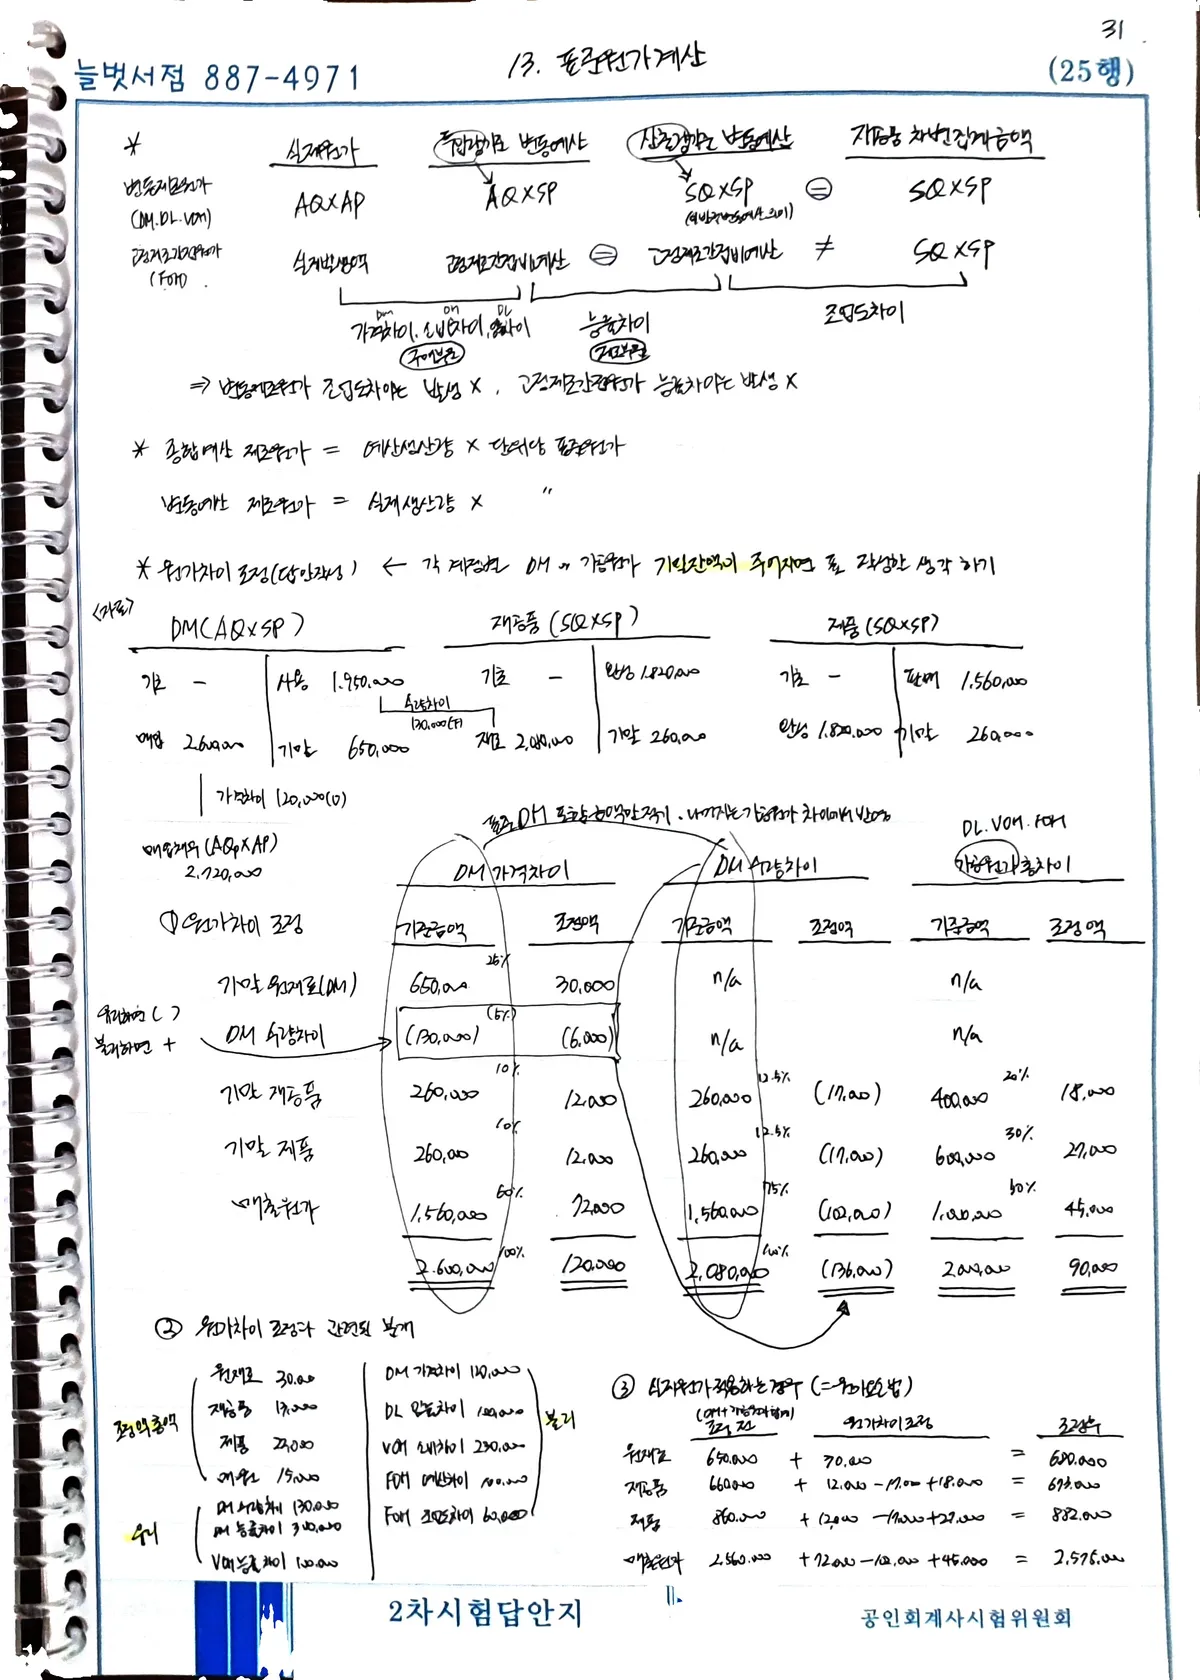 31
13. 표준원가계산
늘벗서점 887-4971
(25행)
* 실제원가 투입량기준 변동예산 산출량기준 변동예산 재공품 차변집계금액
변동제조원가 (DM.DL.VOH) AQ×AP AQ×SP SQ×SP = SQ×SP
고정제조간접원가 (FOH) 실제발생액 고정제조간접비예산 = 고정제조간접비예산 ≠ SQ×SP
DM OH DL
가격차이, 소비차이, 임률차이 능률차이 조업도차이
구매부문 제조부문
⇒ 변동제조원가 조업도차이는 발생 X, 고정제조간접원가 능률차이는 발생 X
* 종합예산 제조원가 = 예산생산량 × 단위당 표준원가
변동예산 제조원가 = 실제생산량 × 〃
* 원가차이 조정(답안작성) ← 각 계정별 DM or 가공원가 기말잔액이 주어지면 표 작성할 생각 하기
<자료>
DM(AQ×SP) 재공품(SQ×SP) 제품(SQ×SP)
기초 - 사용 1,950,000 기초 - 완성 1,820,000 기초 - 판매 1,560,000
수량차이
130,000(F)
매입 2,600,000 기말 650,000 재료 2,080,000 기말 260,000 완성 1,820,000 기말 260,000
가격차이 120,000(U)
표준 DM 포함 금액만 적기. 나머지는 가공원가 차이에서 반영
매입채무(AQp×AP)
2,720,000
DL.VOH.FOH
DM 가격차이 DM 수량차이 가공원가 총차이
① 원가차이 조정 기준금액 조정액 기준금액 조정액 기준금액 조정액
기말 원재료(DM) 650,000 25% 30,000 n/a n/a
유리하면 ( )
불리하면 +
DM 수량차이 (130,000) (5%) (6,000) n/a n/a
기말 재공품 260,000 10% 12,000 260,000 12.5% (17,000) 400,000 20% 18,000
기말 제품 260,000 10% 12,000 260,000 12.5% (17,000) 600,000 30% 27,000
매출원가 1,560,000 60% 72,000 1,560,000 75% (102,000) 1,000,000 50% 45,000
2,600,000 100% 120,000 2,080,000 100% (136,000) 2,000,000 90,000
② 원가차이 조정과 관련된 분개
원재료 30,000 DM 가격차이 120,000
재공품 13,000 DL 임률차이 100,000
조정액총액 불리
제품 22,000 VOH 소비차이 230,000
매원 15,000 FOH 예산차이 100,000
DM 수량차이 130,000 FOH 조업도차이 60,000
유리
DL 능률차이 340,000
VOH 능률차이 100,000
③ 실제원가 적용하는경우 (=원가요소법)
(DM+가공원가 합계)
조정 전 원가차이조정 조정후
원재료 650,000 + 30,000 = 680,000
재공품 660,000 + 12,000 - 17,000 + 18,000 = 673,000
제품 860,000 + 12,000 - 17,000 + 27,000 = 882,000
매출원가 2,560,000 + 72,000 - 102,000 + 45,000 = 2,575,000
2차시험답안지
공인회계사시험위원회